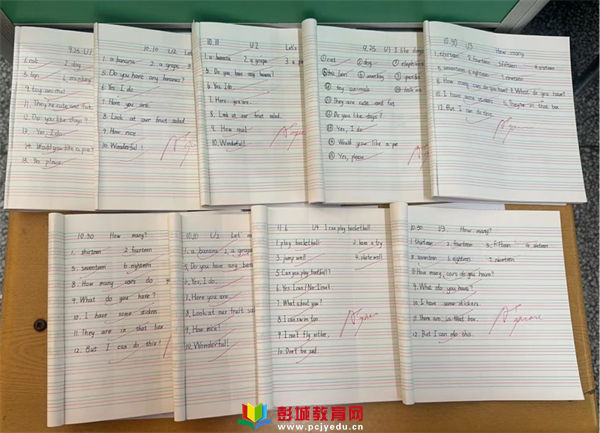 9.25 U1
1. cat 2. dog
3. lion 4. monkey
9. toy animal
11. They're cute and fat.
12. Do you like dogs?
13. Yes, I do.
14. Would you like a pie?
15. Yes, please.
10.10 U2 Let's
1. a banana 2. a grape
5. Do you have any bananas?
6. Yes, I do.
7. Here you are.
8. Look at our fruit salad.
9. How nice!
10. Wonderful!
10.11 U2 Let's
1. a banana 2. a grape 3. a
5. Do you have any bananas?
6. Yes, I do.
7. Here you are.
8. Look at our fruit salad.
9. How nice!
10. Wonderful!
9.25 U1 I like dogs
cat dog elephant
toy animals
They are cute and fat
Do you like dogs?
Yes, I do.
Would you like a pie
Yes, please.
10.30 U3 How many
1. thirteen 2. fourteen 3. fifteen 4. sixteen
5. seventeen 6. eighteen 7. nineteen
8. How many cars do you have? 9. What do you have?
10. I have some stickers. 11. They're in that box
12. But I can do this.
10.30 How many?
1. thirteen 2. fourteen
5. seventeen 6. eighteen
8. How many cars do y
9. What do you have?
10. I have some stickers
11. They are in that box
12. But I can do this!
10.10 U2 Let'
1. a banana 2. a grape
5. Do you have any ban
6. Yes, I do.
7. Here you are.
8. Look at our fruit sala
9. How nice!
10. Wonderful!
11.6 U4 I can play basketball
1. play basketball 2. have a try
3. jump well 4. skate well
5. Can you play football?
6. Yes, I can. / No, I can't.
7. What about you?
8. I can swim too
9. I can't fly either.
10. Don't be sad.
10.30 U3 How many?
1. thirteen 2. fourteen 3. fifteen 4. sixteen
5. seventeen 6. eighteen 7. nineteen
8. How many cars do you have?
9. What do you have?
10. I have some stickers.
11. There are in that box.
12. But I can do this.
彭城教育网
www.pcjyedu.cn